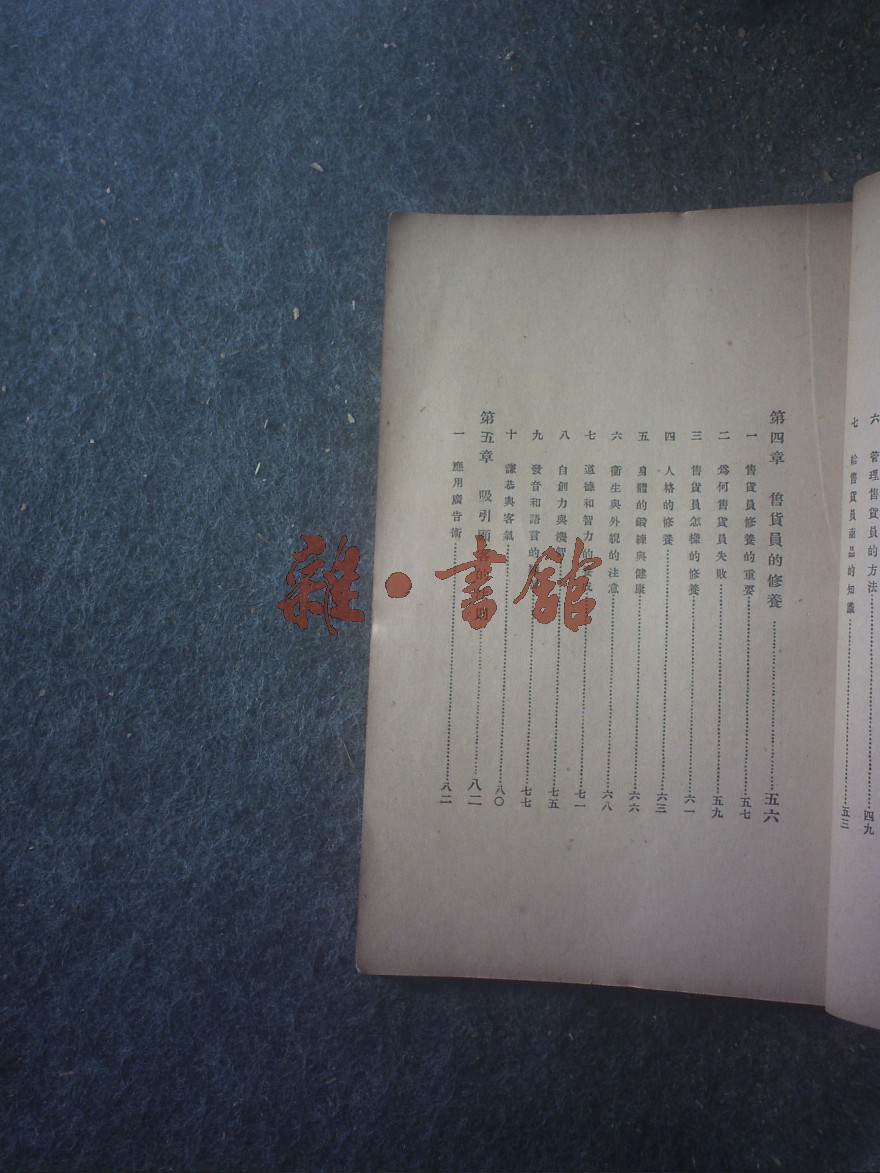 六 管理售貨員的方法……四九
七 給售貨員商品的知識……五三
第四章 售貨員的修養……五六
一 售貨員修養的重要……五七
二 爲何售貨員失敗……五九
三 售貨員怎樣的修養……六一
四 人格的修養……六三
五 身體的鍛練與健康……六六
六 衞生與外貌的注意……六八
七 道德和智力的……七一
八 自創力與機……七五
九 發音和語言的……七七
十 謙恭與客氣……八〇
第五章 吸引顧客的 則……八二
一 應用廣告術……八二
雜·書館